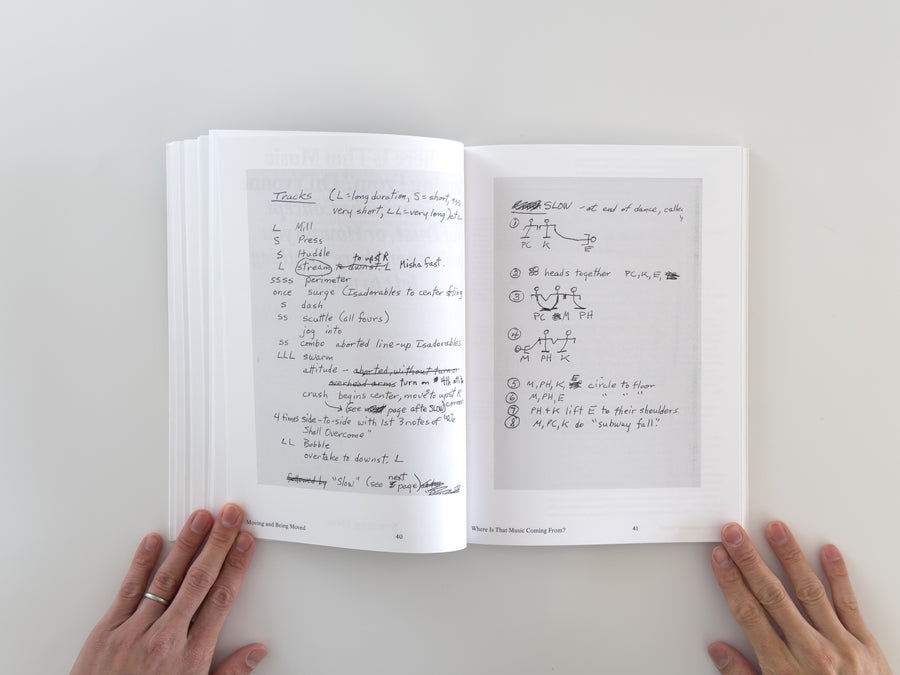 Tracks (L = long duration, S = short, sss
very short, LL = very long) etc.
L Mill
S Press
S Huddle
to upst R
L stream, to downst. L Misha fast.
ssss perimeter
once surge (Isadorables to center
S dash
SS scuttle (all fours)
jog into
SS combo aborted line-up Isadorables
LLL swarm
attitude – aborted, without turn or
overhead arms turn on 4th
crush begins center, move to upst R
(see page after SLOW)
4 times side-to-side with 1st 3 notes of "We
Shall Overcome"
LL Bobble
overtake to downst. L
followed by "Slow" (see next page)
Moving and Being Moved
40
SLOW – at end of dance, called
①
PC K E
② heads together PC, K, E,
③
PC M PH
④
M PH K
⑤ M, PH, K, E circle to floor
⑥ M, PH, E " " "
⑦ PH + K lift E to their shoulders.
⑧ M, PC, K do "subway fall."
Where Is That Music Coming From?
41